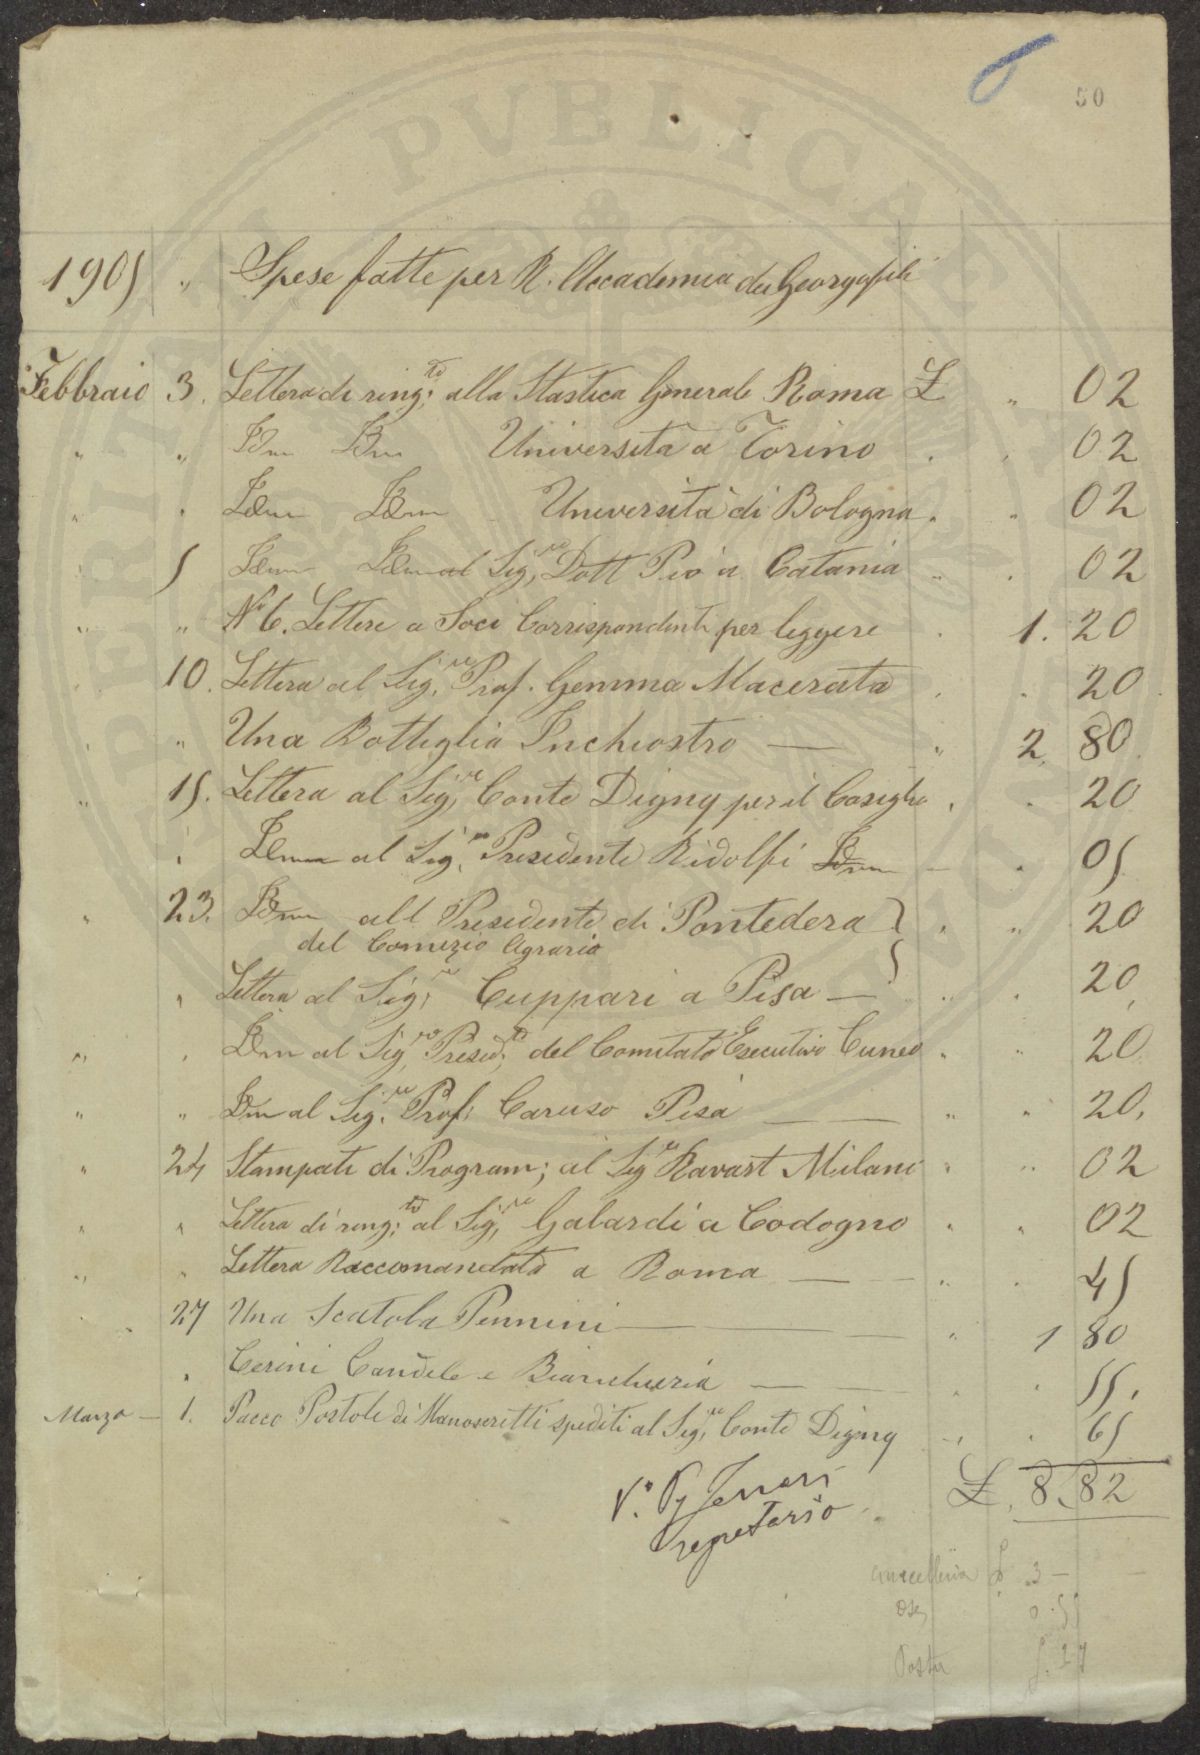 50
1905 " Spese fatte per R. Accademia dei Georgofili
Febbraio 3. Lettera di ring:to alla Stastica Generale Roma £ " 02
" " Idm Idm Università a Torino . . 02
" " Idem Idem Università di Bologna . " 02
" 5 Idem Idem al Sig.re Dott Pio a Catania " . 02
" " No 6. Lettere a Soci Corrispondenti per leggere . 1. 20
10. Lettera al Sig.re Prof. Gemma Macerata . . 20
" " Una Bottiglia Inchiostro — " 2. 80
" 15. Lettera al Sig.re Conte Digny per il Cosiglio . . 20
" Idem al Sig.re Presidente Ridolfi Idem — . 05
" 23. Idem all Presidente di Pontedera } " " 20
del Comizio Agrario
" Lettera al Sig.re Cuppari a Pisa — " . 20
" . Idm al Sig.re Presid.te del Comitato Esecutivo Cuneo " " 20
" " Idm al Sig.re Prof: Caruso Pisa — — " " 20.
" 24 Stampati di Program; al Sig.re Ravast Milano " " 02
" " Lettera di ring:to al Sig.re Galardi a Codogno " " 02
" " Lettera Raccomandata a Roma — — " . 45
27 Una Scatola Pennini — — — " 1 80
" Cerini Candele e Biancheria — — . . 55.
Marzo — 1. Pacco Postole di Manoscritti spediti al Sig.re Conte Digny — . 65
£. 8.82
V.o
segretario
cancelleria £ 3 —
0.55
Posta